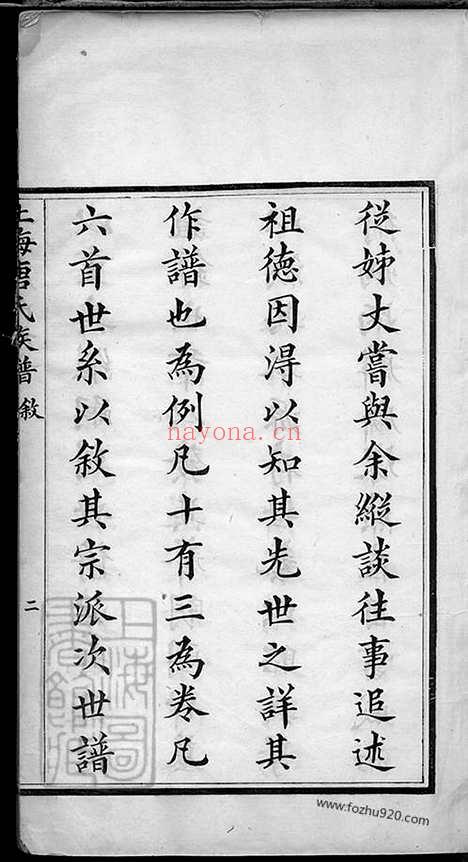 從姊丈嘗與余縱談往事追述
祖德因淂以知其先世之詳其
作譜也為例凡十有三為卷凡
六首世系以敘其宗派次世譜
上海唐氏族譜
敘
二
nayona.cn
www.fozhu920.com